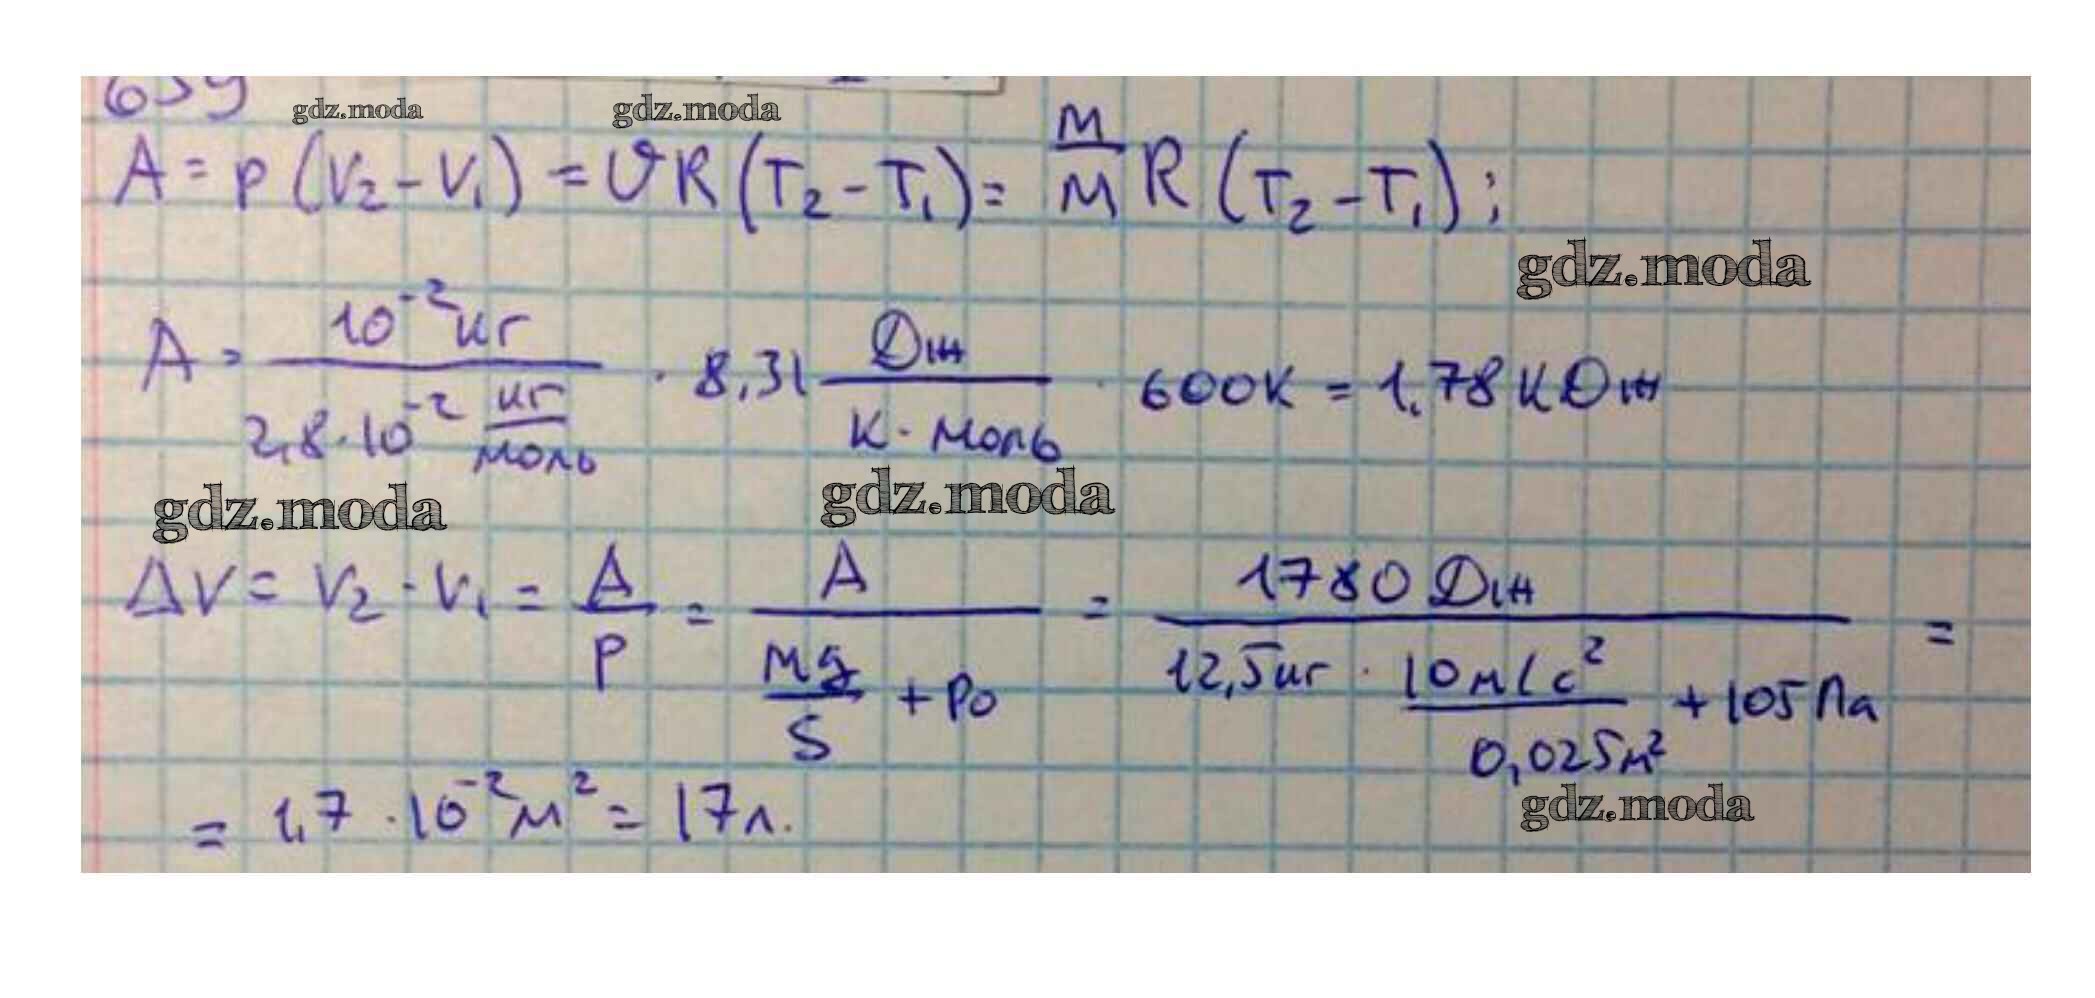 659
gdz.moda gdz.moda
A = p (V₂ - V₁) = υR (T₂ - T₁) = m/M R (T₂ - T₁) ;
gdz.moda
A = 10⁻² кг / 2,8 · 10⁻² кг/моль · 8,31 Дж / К · моль · 600К = 1,78 кДж
gdz.moda gdz.moda
ΔV = V₂ - V₁ = A / p = A / Mg/S + p₀ = 1780 Дж / 12,5кг · 10м/с² / 0,025м² + 105 Па =
gdz.moda
= 1,7 · 10⁻² м² = 17л.